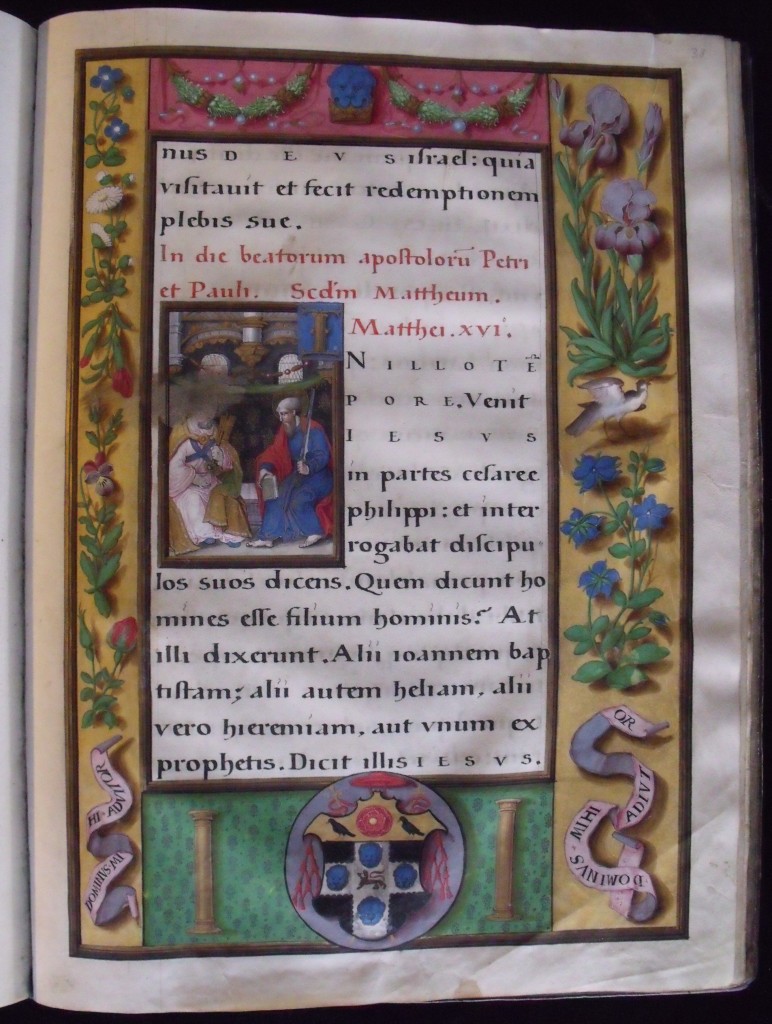 31
nus D E V S israel: quia
visitauit et fecit redemptionem
plebis sue.
In die beatorum apostolorū Petri
et Pauli. Scd̄m Mattheum.
Matthei. xvi.
I
N ILLO TĒ
PORE. Venit
IESVS
in partes cesaree
philippi: et inter
rogabat discipu
los suos dicens. Quem dicunt ho
mines esse filium hominis? At
illi dixerunt. Alii ioannem bap
tistam; alii autem heliam, alii
vero hieremiam, aut vnum ex
prophetis. Dicit illis IESVS.
DOMINVS MI
HI ADVITOR
DOMINVS
MIHI
ADIVT
OR